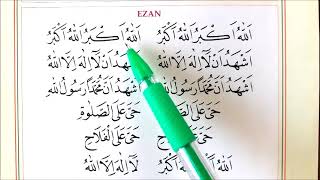 EZAN
اَللّٰهُ اَكْبَرُ اَللّٰهُ اَكْبَرُ اَللّٰهُ اَكْبَرُ اَللّٰهُ اَكْبَرُ
اَشْهَدُ اَنْ لَٓا اِلٰهَ اِلَّا اللّٰهُ اَشْهَدُ اَنْ لَٓا اِلٰهَ اِلَّا اللّٰهُ
اَشْهَدُ اَنَّ مُحَمَّدًا رَسُولُ اللّٰهِ اَشْهَدُ اَنَّ مُحَمَّدًا رَسُولُ اللّٰهِ
حَىَّ عَلَى الصَّلٰوةِ حَىَّ عَلَى الصَّلٰوةِ
حَىَّ عَلَى الْفَلَاحِ حَىَّ عَلَى الْفَلَاحِ
اَللّٰهُ اَكْبَرُ لَٓا اِلٰهَ اِلَّا اللّٰهُ